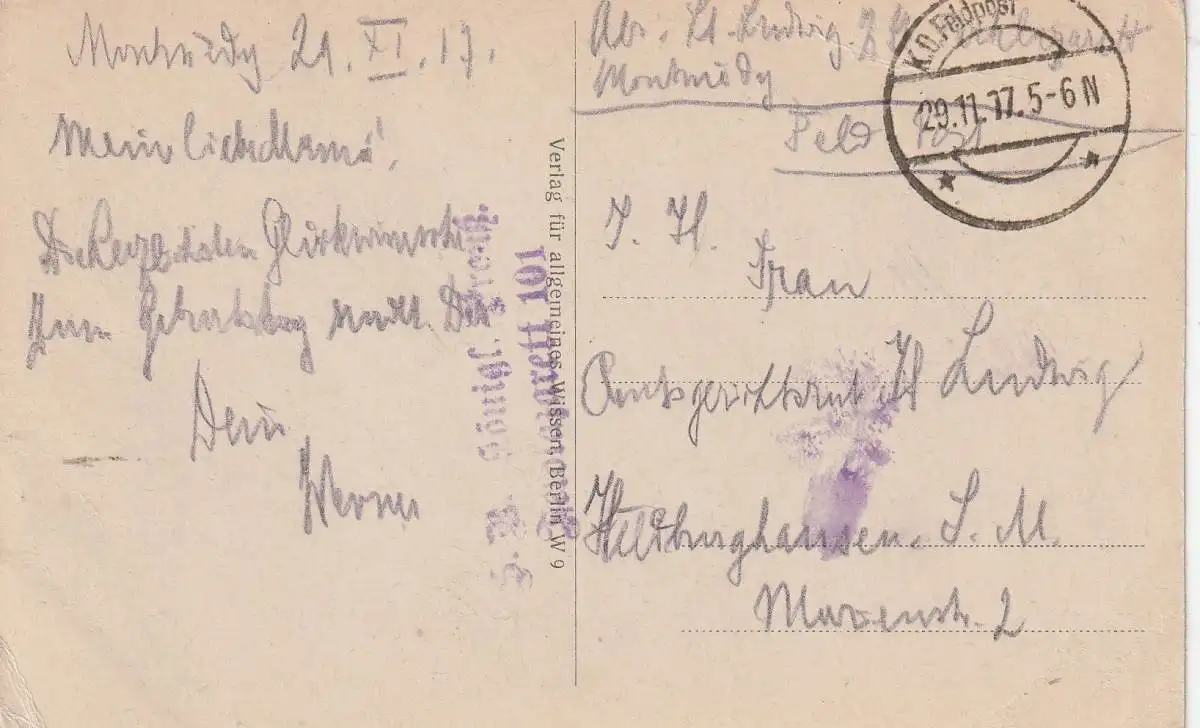 Montmédy 21. XI. 17.
Mein liebe Mama!
Die herzlichsten Glückwünsche
zum Geburtstag
Dein
Werner
Verlag für allgemeines Wissen, Berlin W 9
Abs. Lt. Ludwig
Montmédy
Feldpost
K.D. Feldpost
29.11.17. 5-6 N
I. H.
Frau
Amtsgerichtsrat H Ludwig
Hildburghausen. S. M.
Marienstr. 2